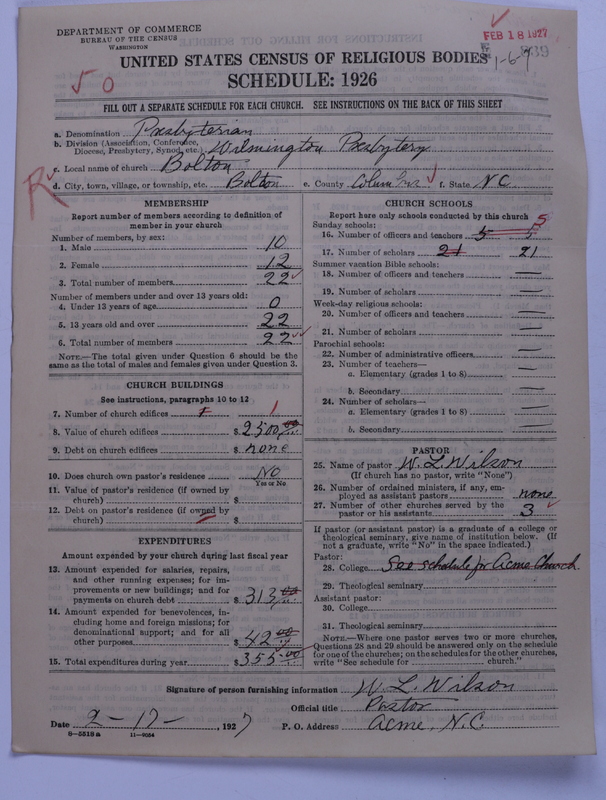 DEPARTMENT OF COMMERCE
BUREAU OF THE CENSUS
WASHINGTON
FEB 18 1927
1-6-7
UNITED STATES CENSUS OF RELIGIOUS BODIES
SCHEDULE: 1926
FILL OUT A SEPARATE SCHEDULE FOR EACH CHURCH. SEE INSTRUCTIONS ON THE BACK OF THIS SHEET
a. Denomination Presbyterian
b. Division (Association, Conference, Diocese, Presbytery, Synod, etc.) Wilmington Presbytery
c. Local name of church Bolton
d. City, town, village, or township, etc. Bolton e. County Columbus f. State N.C.
MEMBERSHIP
Report number of members according to definition of
member in your church
Number of members, by sex:
1. Male 10
2. Female 12
3. Total number of members 22
Number of members under and over 13 years old:
4. Under 13 years of age 0
5. 13 years old and over 22
6. Total number of members 22
NOTE.—The total given under Question 6 should be
same as the total of males and females given under Question 3.
CHURCH BUILDINGS
See instructions, paragraphs 10 to 12
7. Number of church edifices 1 1
8. Value of church edifices $ 2500.00
9. Debt on church edifices $ none
10. Does church own pastor's residence No
Yes or No
11. Value of pastor's residence (if owned by
church) $
12. Debt on pastor's residence (if owned by
church) $
EXPENDITURES
Amount expended by your church during last fiscal year
13. Amount expended for salaries, repairs,
and other running expenses; for im-
provements or new buildings; and for
payments on church debt $ 313.00
14. Amount expended for benevolences, in-
cluding home and foreign missions; for
denominational support; and for all
other purposes $ 42.00
15. Total expenditures during year $ 355.00
CHURCH SCHOOLS
Report here only schools conducted by this church
Sunday schools:
16. Number of officers and teachers 5 5 5
17. Number of scholars 21 21
Summer vacation Bible schools:
18. Number of officers and teachers —
19. Number of scholars —
Week-day religious schools:
20. Number of officers and teachers —
21. Number of scholars —
Parochial schools:
22. Number of administrative officers —
23. Number of teachers—
a. Elementary (grades 1 to 8) —
b. Secondary —
24. Number of scholars—
a. Elementary (grades 1 to 8) —
b. Secondary —
PASTOR
25. Name of pastor W. L. Wilson
(If church has no pastor, write "None")
26. Number of ordained ministers, if any, em-
ployed as assistant pastors none
27. Number of other churches served by the
pastor or his assistants 3
If pastor (or assistant pastor) is a graduate of a college or
theological seminary, give name of institution below. (If
not a graduate, write "No" in the space indicated.)
Pastor:
28. College See schedule for Acme Church
29. Theological seminary
Assistant pastor:
30. College
31. Theological seminary
NOTE.—Where one pastor serves two or more churches,
Questions 28 and 29 should be answered only on the schedule
for one of the churches; on the schedules for the other churches,
write "See schedule for church."
Signature of person furnishing information W. L. Wilson
Official title Pastor
Date 2-17-, 1927 P. O. Address Acme, N.C.
8-5518a 11-9054